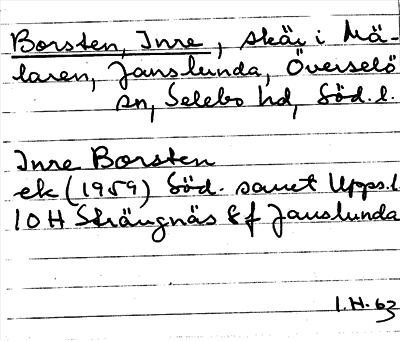 Borsten, Inre, skär i Mä-
laren, Janslunda, Överselö
sn, Selebo hd, Söd. l.
Inre Borsten
ek (1959) Söd. samt Upps. l
10 H Strängnäs 8f Janslunda
I.H. 63